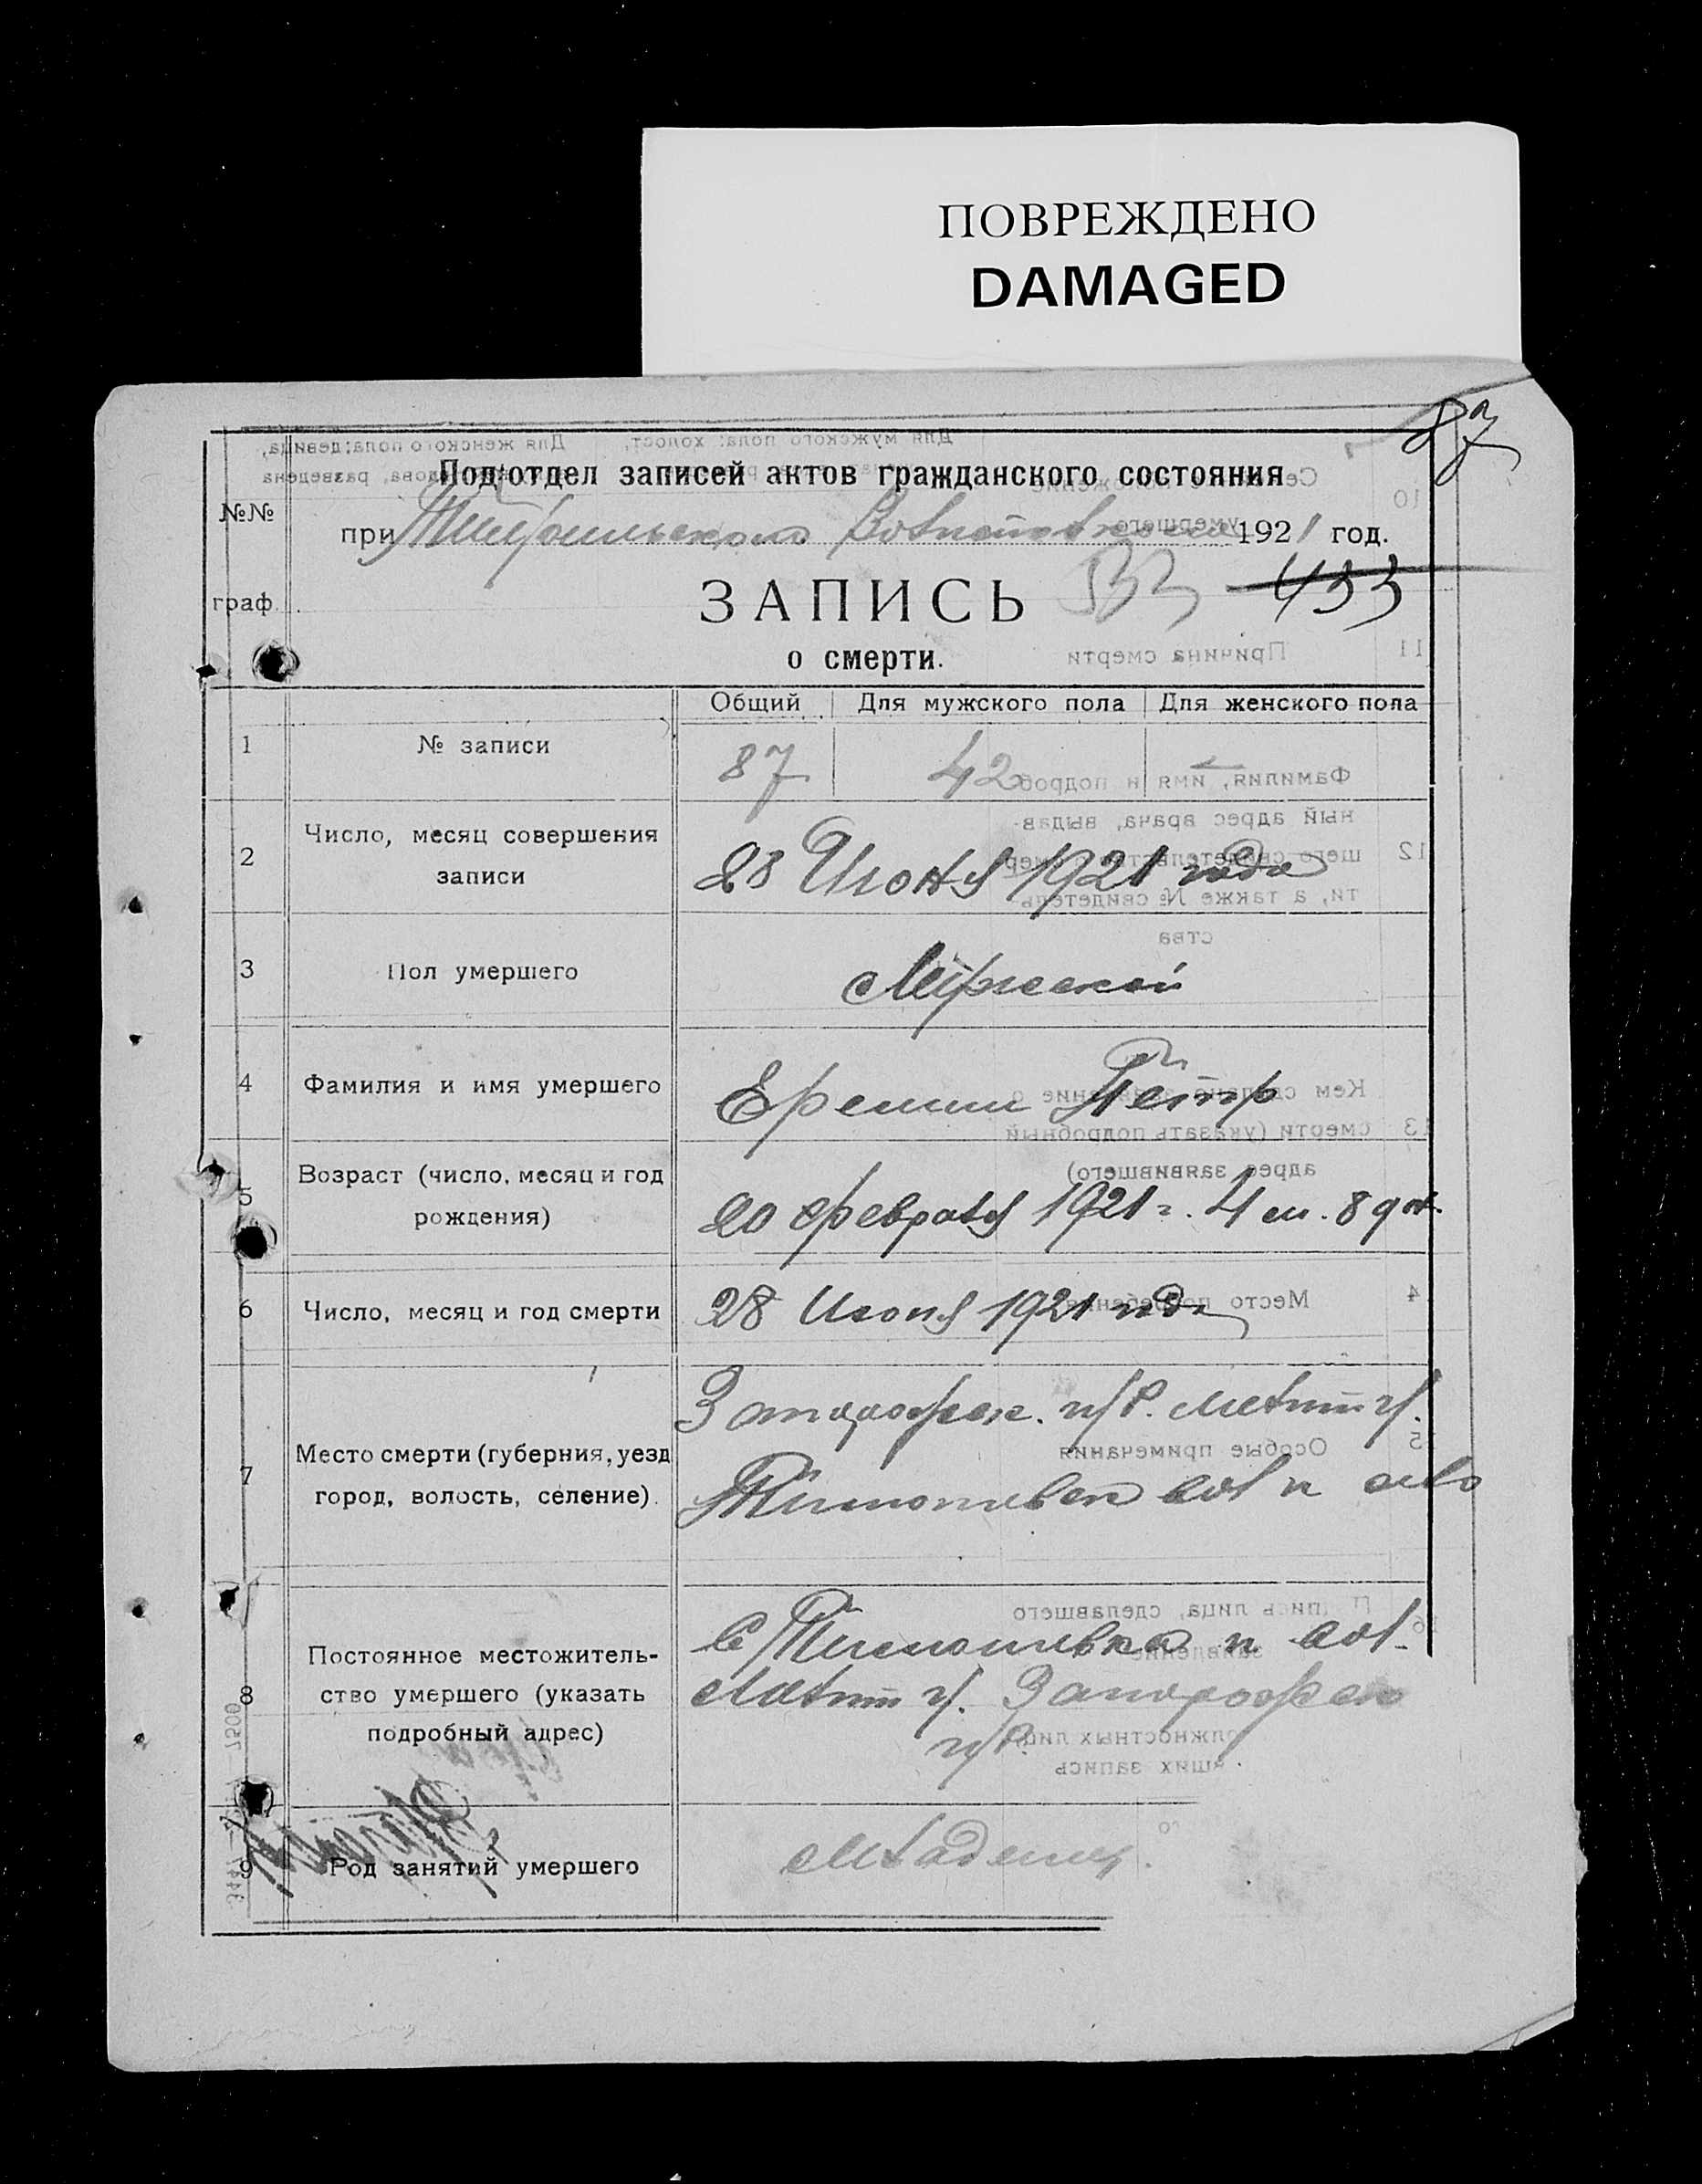 ПОВРЕЖДЕНО
DAMAGED
87
Подотдел записей актов гражданского состояния
№№
при 1921 год.
граф.
ЗАПИСЬ 433
о смерти.
Общий Для мужского пола Для женского пола
1 № записи 87 42
2 Число, месяц совершения
записи
28 Июня 1921 года
3 Пол умершего Мужской
4 Фамилия и имя умершего Еремин Петр
5 Возраст (число, месяц и год
рождения)
20 февраля 1921 г. 4 м. 8 дн.
6 Число, месяц и год смерти 28 Июня 1921 года
7 Место смерти (губерния, уезд
город, волость, селение).
Запорожск. г/
вол
8 Постоянное местожитель-
ство умершего (указать
подробный адрес)
с Тимошивка вол.
Мелит у. Запорожск
9 Род занятий умершего Младенец.